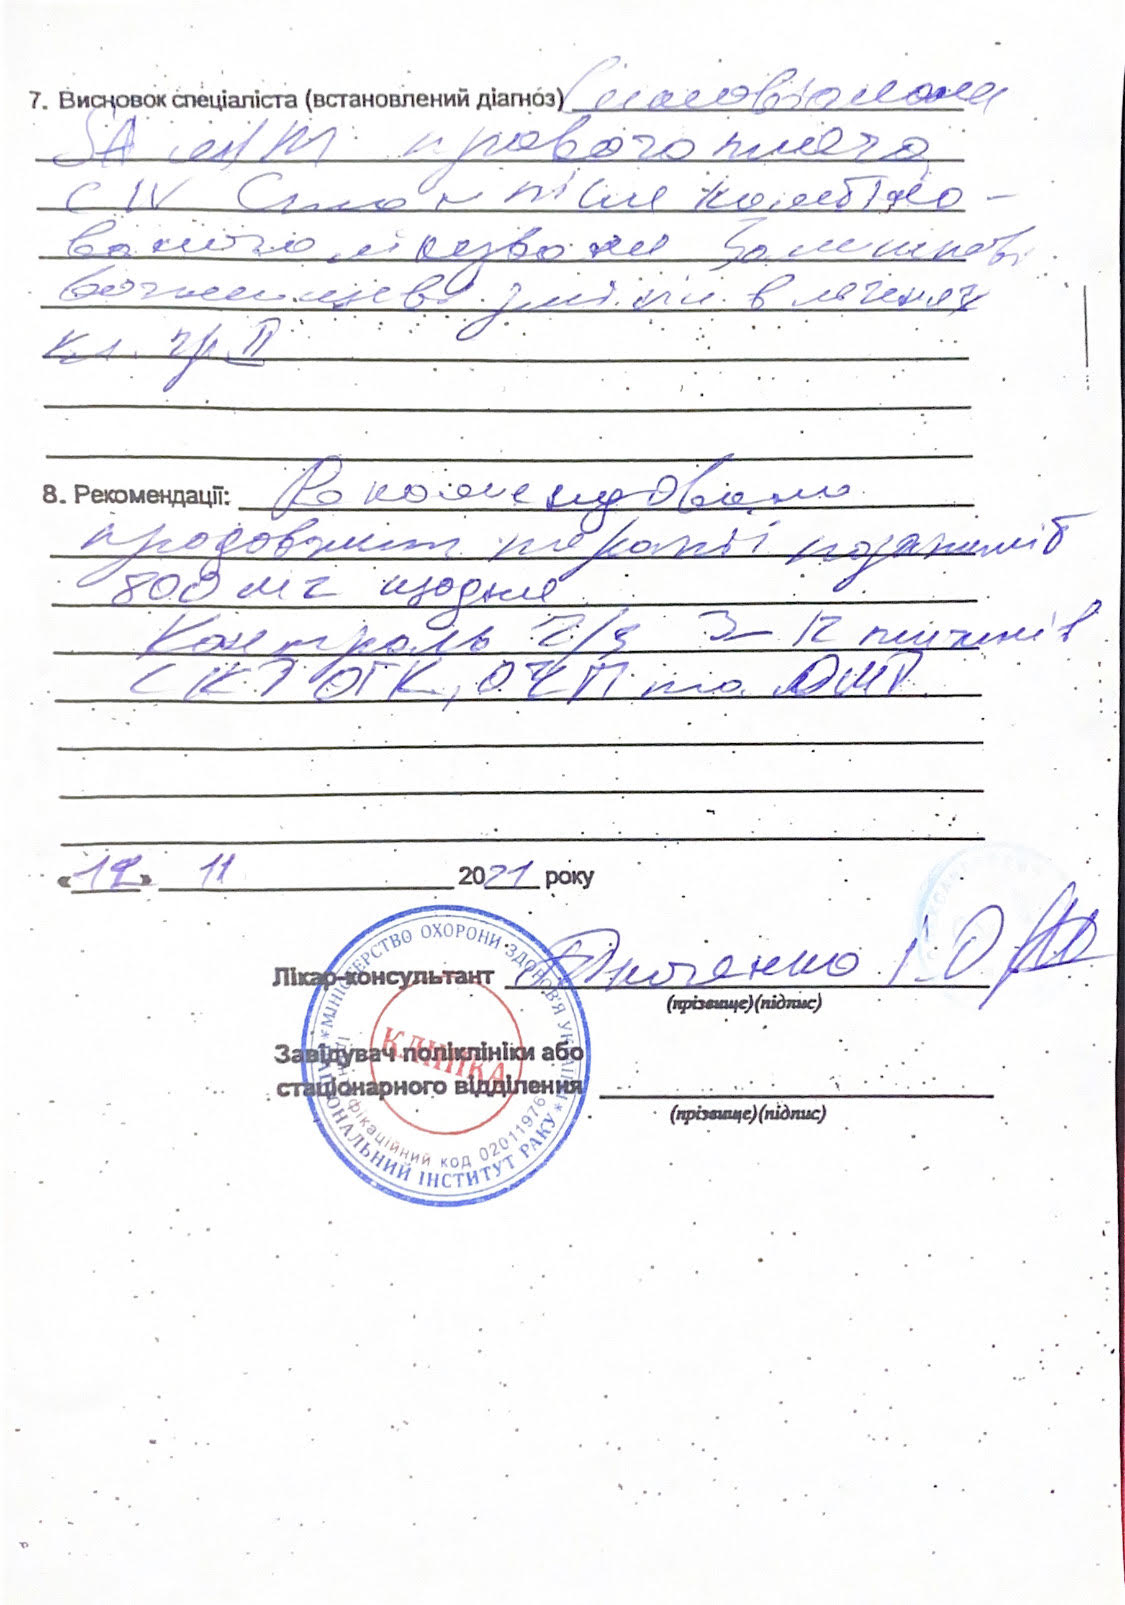 7. Висновок спеціаліста (встановлений діагноз)
правого плеча
C IV Стан після комбіно-
ваного лікування Залишкові
вогнищеві зміни в легенях
кл. гр. II
8. Рекомендації: Рекомендовано
продовжити терапії пазопаніб
800 мг щодня
Контроль ч/з 12 тижнів
СКТ ОГК, ОЧП та ОМТ
« » 11 2021 року
Лікар-консультант І.О
(прізвище)(підпис)
Завідувач поліклініки або
стаціонарного відділення
(прізвище)(підпис)
МІНІСТЕРСТВО ОХОРОНИ ЗДОРОВ'Я УКРАЇНИ * НАЦІОНАЛЬНИЙ ІНСТИТУТ РАКУ *
Ідентифікаційний код 02011976
КЛІНІКА